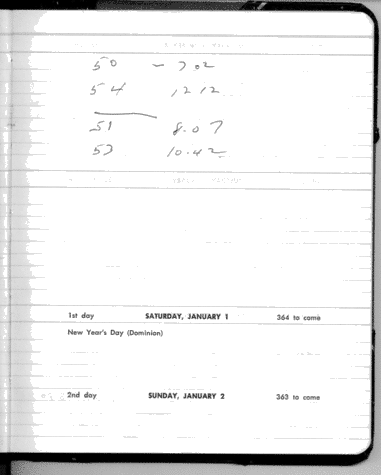 50 – 7.02
54 12 12
51 8.07
53 10.42
1st day SATURDAY, JANUARY 1 364 to come
New Year's Day (Dominion)
2nd day SUNDAY, JANUARY 2 363 to come